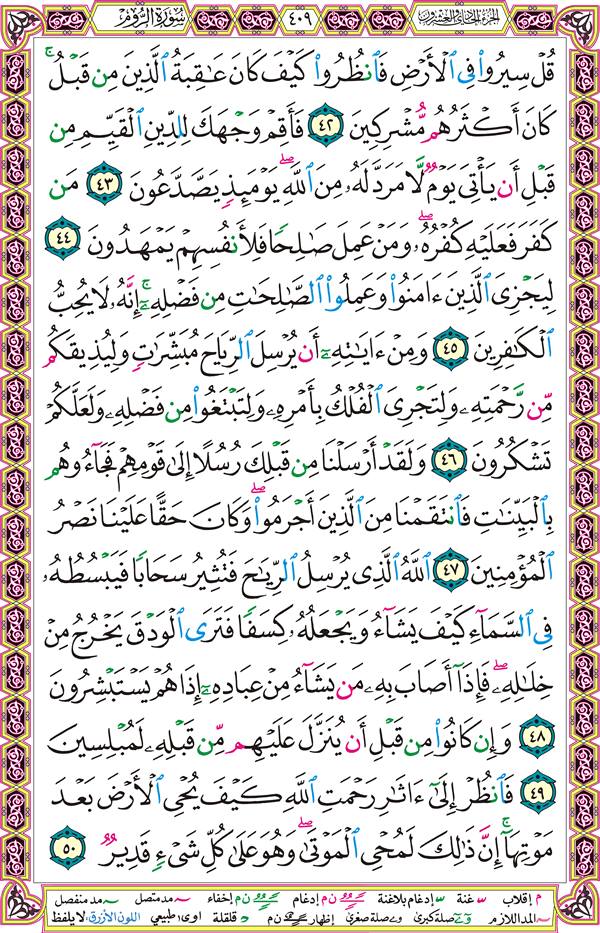 الجزء الحادي والعشرون ٤٠٩ سورة الروم
قُلْ سِيرُوا۟ فِى ٱلْأَرْضِ فَٱنظُرُوا۟ كَيْفَ كَانَ عَـٰقِبَةُ ٱلَّذِينَ مِن قَبْلُ ۚ
كَانَ أَكْثَرُهُم مُّشْرِكِينَ ٤٢ فَأَقِمْ وَجْهَكَ لِلدِّينِ ٱلْقَيِّمِ مِن
قَبْلِ أَن يَأْتِىَ يَوْمٌ لَّا مَرَدَّ لَهُۥ مِنَ ٱللَّهِ ۖ يَوْمَئِذٍ يَصَّدَّعُونَ ٤٣ مَن
كَفَرَ فَعَلَيْهِ كُفْرُهُۥ ۖ وَمَنْ عَمِلَ صَـٰلِحًا فَلِأَنفُسِهِمْ يَمْهَدُونَ ٤٤
لِيَجْزِىَ ٱلَّذِينَ ءَامَنُوا۟ وَعَمِلُوا۟ ٱلصَّـٰلِحَـٰتِ مِن فَضْلِهِۦٓ ۚ إِنَّهُۥ لَا يُحِبُّ
ٱلْكَـٰفِرِينَ ٤٥ وَمِنْ ءَايَـٰتِهِۦٓ أَن يُرْسِلَ ٱلرِّيَاحَ مُبَشِّرَٰتٍ وَلِيُذِيقَكُم
مِّن رَّحْمَتِهِۦ وَلِتَجْرِىَ ٱلْفُلْكُ بِأَمْرِهِۦ وَلِتَبْتَغُوا۟ مِن فَضْلِهِۦ وَلَعَلَّكُمْ
تَشْكُرُونَ ٤٦ وَلَقَدْ أَرْسَلْنَا مِن قَبْلِكَ رُسُلًا إِلَىٰ قَوْمِهِمْ فَجَآءُوهُم
بِٱلْبَيِّنَـٰتِ فَٱنتَقَمْنَا مِنَ ٱلَّذِينَ أَجْرَمُوا۟ ۖ وَكَانَ حَقًّا عَلَيْنَا نَصْرُ
ٱلْمُؤْمِنِينَ ٤٧ ٱللَّهُ ٱلَّذِى يُرْسِلُ ٱلرِّيَـٰحَ فَتُثِيرُ سَحَابًا فَيَبْسُطُهُۥ
فِى ٱلسَّمَآءِ كَيْفَ يَشَآءُ وَيَجْعَلُهُۥ كِسَفًا فَتَرَى ٱلْوَدْقَ يَخْرُجُ مِنْ
خِلَـٰلِهِۦ ۖ فَإِذَآ أَصَابَ بِهِۦ مَن يَشَآءُ مِنْ عِبَادِهِۦٓ إِذَا هُمْ يَسْتَبْشِرُونَ
٤٨ وَإِن كَانُوا۟ مِن قَبْلِ أَن يُنَزَّلَ عَلَيْهِم مِّن قَبْلِهِۦ لَمُبْلِسِينَ
٤٩ فَٱنظُرْ إِلَىٰٓ ءَاثَـٰرِ رَحْمَتِ ٱللَّهِ كَيْفَ يُحْىِ ٱلْأَرْضَ بَعْدَ
مَوْتِهَآ ۚ إِنَّ ذَٰلِكَ لَمُحْىِ ٱلْمَوْتَىٰ ۖ وَهُوَ عَلَىٰ كُلِّ شَىْءٍ قَدِيرٌ ٥٠
م إقلاب غنة إدغام بلاغنة ن م إدغام إخفاء ن م مد متصل مد منفصل
المد اللازم صلة كبرى صلة صغرى إظهار ن م قلقلة اوى طبيعي اللون الأزرق لا يلفظ